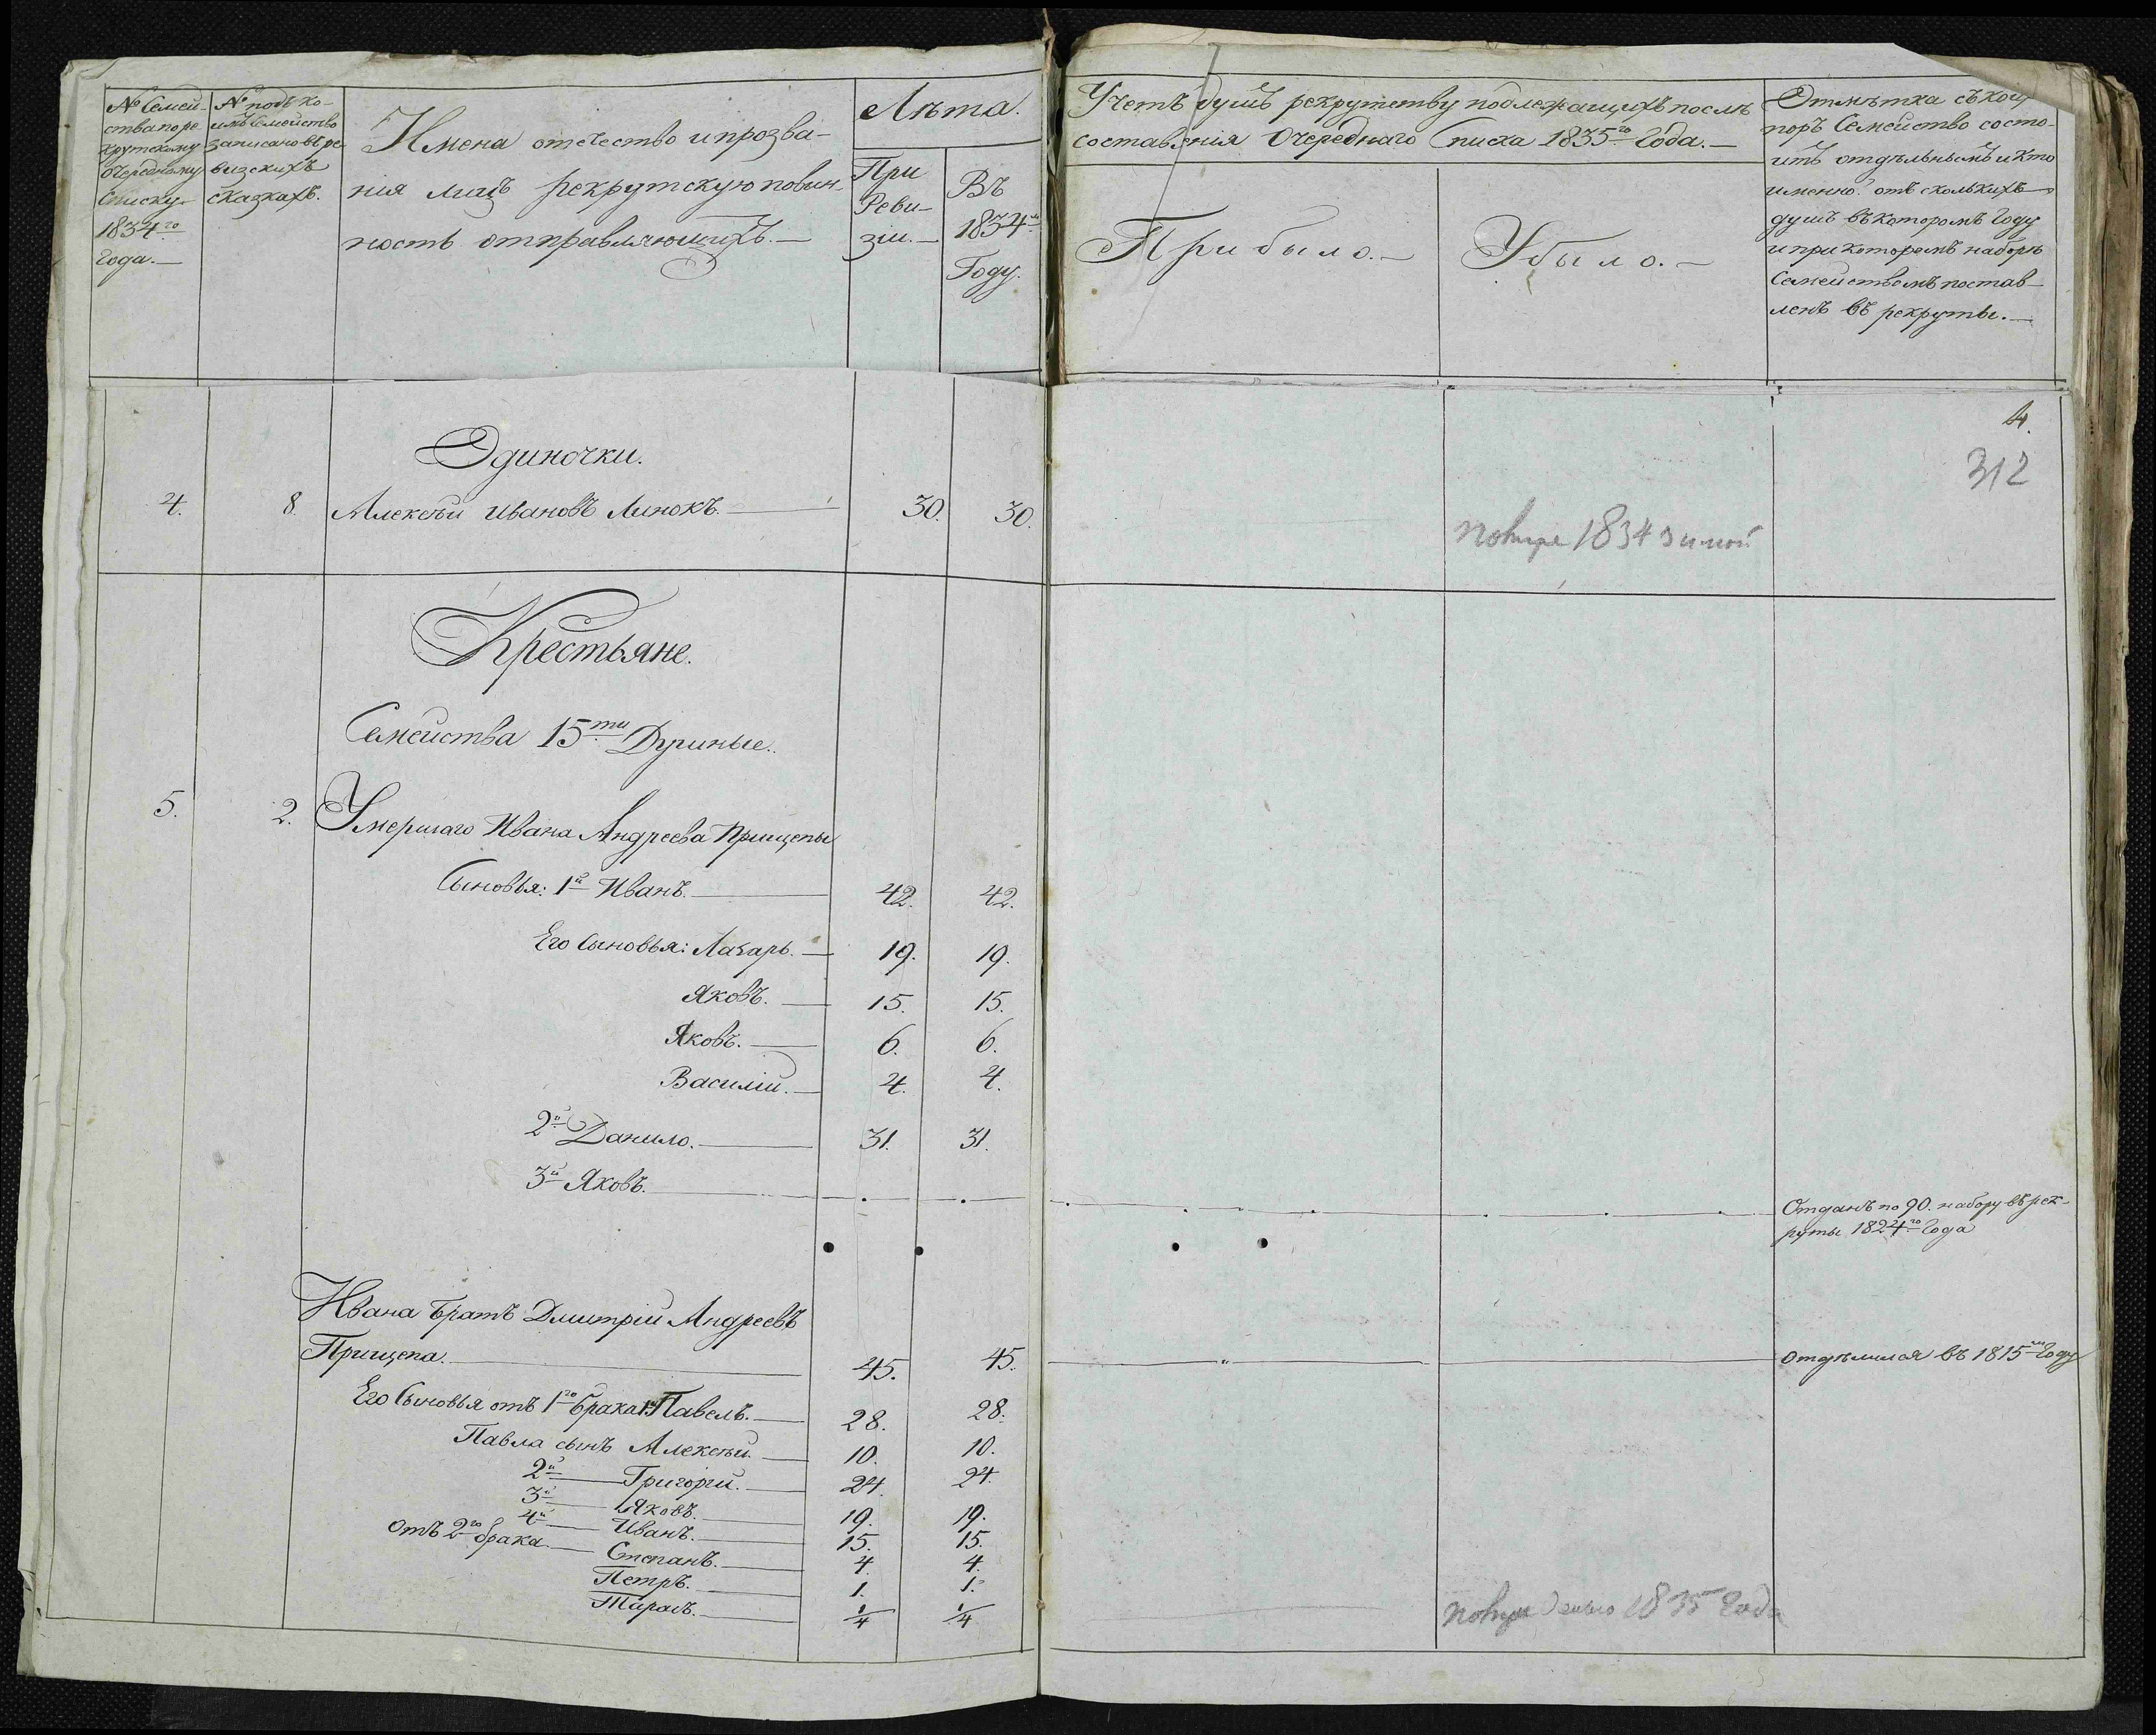 № Семей-
ства по ре
крутскому
очередному
списку
1834го
года.
№ подъ ко-
имъ Семейство
записано въ ре
визскихъ
сказкахъ.
Имена отечество и прозва-
нія лицъ рекрутскую повин-
ность отправляющихъ.
Лѣта.
При
Реви-
зіи.
Въ
1834м
Году.
Учетъ душъ рекрутству подлежащихъ послѣ
составленія Очереднаго Списка 1835го Года.
Прибыло.
Убыло.
Отмѣтка съ кои
поръ Семейство состо-
итъ отдѣльнымъ и кто
именно отъ сколькихъ
душъ въ которомъ году
и при которомъ наборѣ
Семействомъ постав-
ленъ въ рекруты.
4.
312
Одиночки.
4. 8. Алексѣй Ивановъ Линокъ. 30. 30.
1834 зимой
Крестьяне.
Семейства 15ти Душные.
5. 2. Умершаго Ивана Андреева Прищепы
Сыновья: 1й Иванъ. 42. 42.
Его Сыновья: Лазарь. 19. 19.
Яковъ. 15. 15.
Яковъ. 6. 6.
Василій. 4. 4.
2й Данило. 31. 31.
3й Яковъ.
Отданъ по 90. набору въ рек-
руты 1824го Года
Ивана Братъ Дмитрій Андреевъ
Прищепа. 45. 45. отдѣлился въ 1815м Году
Его Сыновья отъ 1го брака 1й Павелъ. 28. 28.
Павла сынъ Алексѣй. 10. 10.
2й Григорій. 24. 24.
3й Яковъ. 19. 19.
4й Иванъ. 15. 15.
Отъ 2го брака Степанъ. 4. 4.
Петръ. 1. 1.
Тарасъ. 1/4 1/4
1835 Года